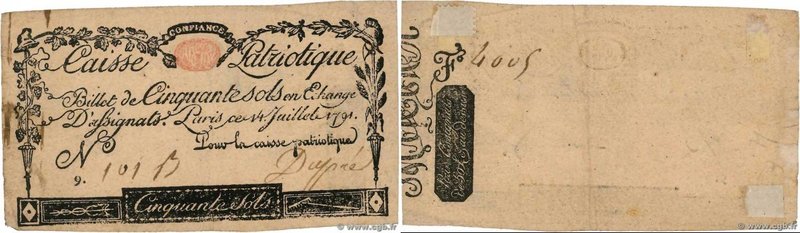 CONFIANCE
Caisse Patriotique
Billet de Cinquante sols en Echange
D'assignats. Paris ce 14 Juillet 1791.
Pour la caisse patriotique
N
9. 101 B Dupré
Cinquante Sols
© www.cgb.fr
Fo 4005
© www.cgb.fr